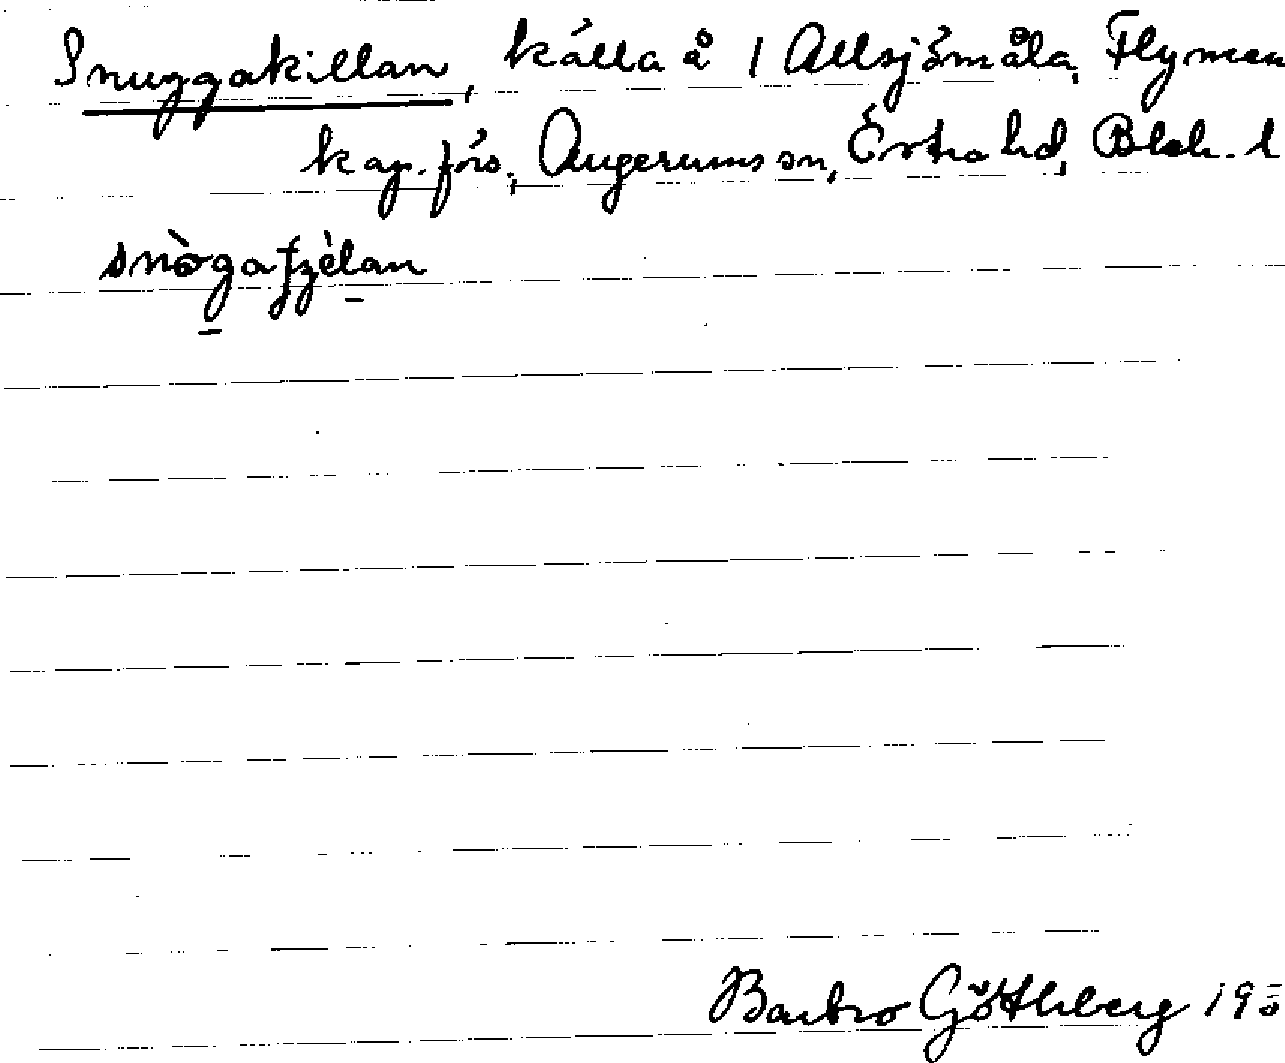 Snuggakillan, källa å 1 Allsjömåla, Flymen
kap.förs., Augerums sn, Östra hd, Blek. l
snògaʃzèlan
Barbro Göthberg 195